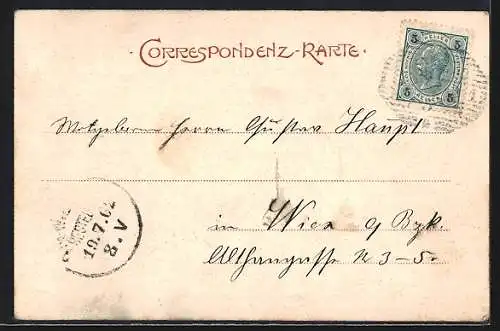 CORRESPONDENZ-KARTE.
5 5
5 5
Herrn Gustav Haupt
in Wien 9 Bzk.
Althangasse N 3-5.
19.7.02
8.V